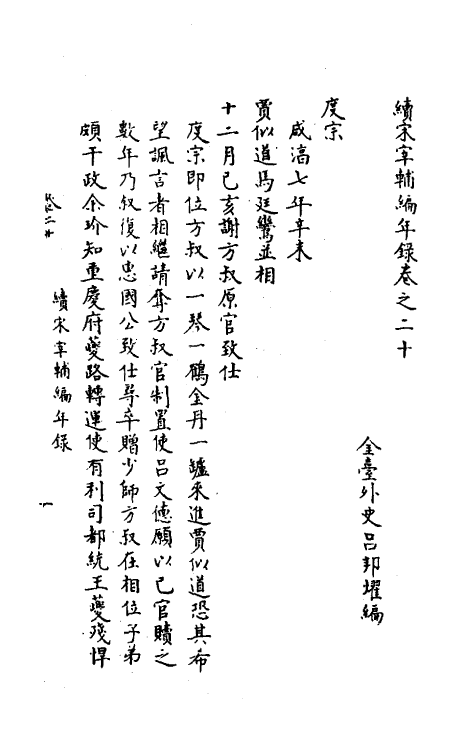 續宋宰輔編年錄卷之二十
全臺外史呂邦燿編
度宗
咸淳七年辛未
賈似道馬廷鸞並相
十二月己亥謝方叔原官致仕
度宗即位方叔以一琴一鶴金丹一罏來進賈似道恐其希
望諷言者相繼請奪方叔官制置使呂文德願以己官贖之
數年乃叔復以惠國公致仕尋卒贈少師方叔在相位子弟
頗干政余玠知重慶府夔路轉運使有利司都統王夔殘悍
卷二十
續宋宰輔編年錄
一